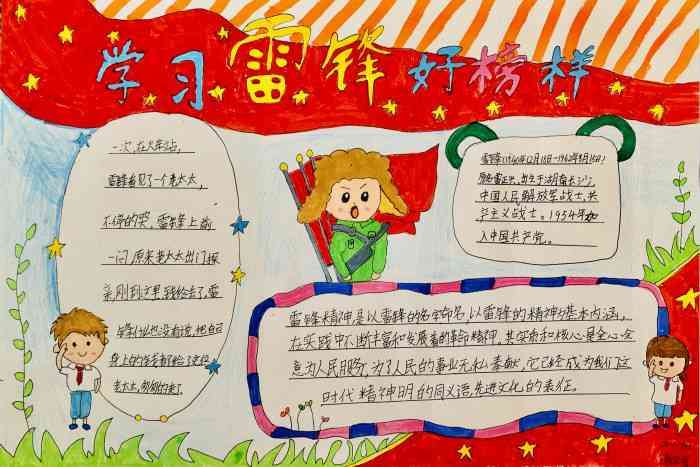 学习雷锋好榜样
一次,在火车站,
雷锋看见了一个老太太,
不停的哭,雷锋上前
一问,原来老太太出门探
亲,刚到这里,钱给丢了,雷
锋什么也没有说,把自
身上的
老太太,
雷锋(1940年12月18日-1962年8月15日)
原名雷正兴,出生于湖南长沙,
中国人民解放军战士,共
产主义战士。1954年加
入中国
雷锋精神是以雷锋的名字命名,以雷锋的精神为基本内涵,
在实践中不断丰富和发展着的革命精神,其实质和核心是全心全
意为人民服务,为了人民的事业无私奉献,它已经成为我们这
时代精神明的同义语,先进文化的表征。